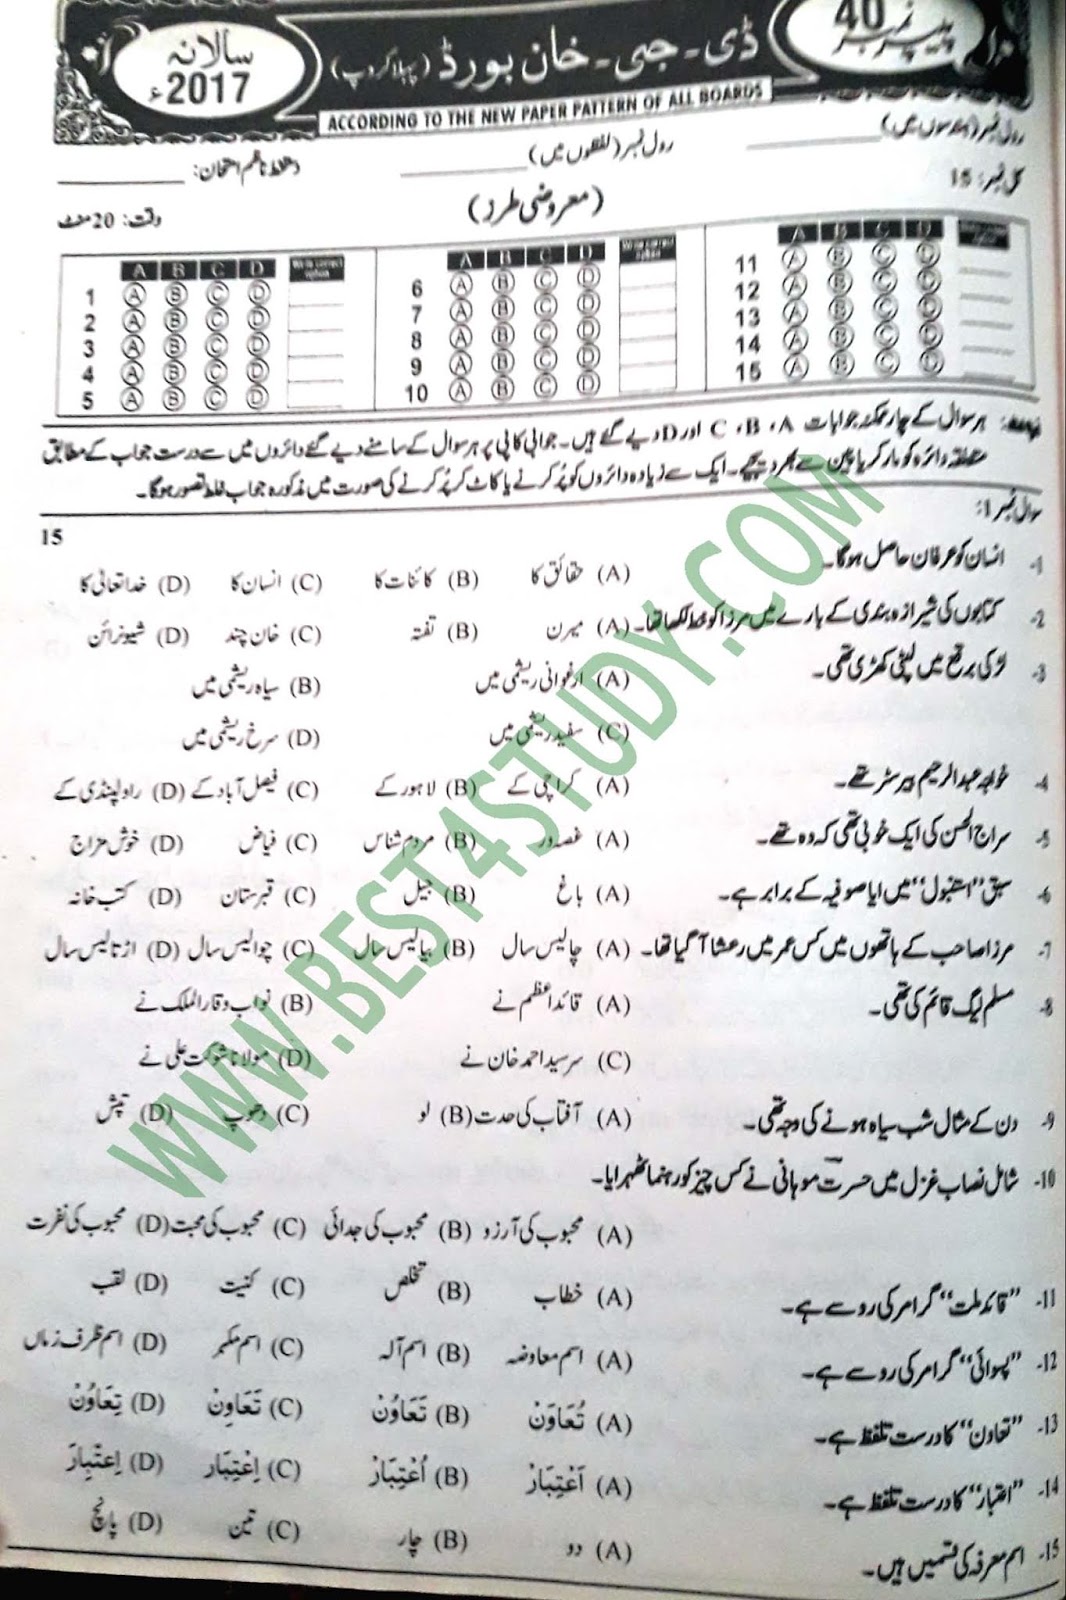 پیپر نمبر 40
ڈی۔جی۔خان بورڈ (پہلا گروپ)
سالانہ 2017ء
ACCORDING TO THE NEW PAPER PATTERN OF ALL BOARDS
رول نمبر (ہندسوں میں) رول نمبر (لفظوں میں) دستخط ناظم امتحان:
کل نمبر: 15 (معروضی طرز) وقت: 20 منٹ
A B C D Write correct option
1 A B C D
2 A B C D
3 A B C D
4 A B C D
5 A B C D
A B C D Write correct option
6 A B C D
7 A B C D
8 A B C D
9 A B C D
10 A B C D
A B C D
11 A B C D
12 A B C D
13 A B C D
14 A B C D
15 A B C D
ہر سوال کے چار ممکنہ جوابات A ، B ، C اور D دیے گئے ہیں۔ جوابی کاپی پر ہر سوال کے سامنے دیے گئے دائروں میں سے درست جواب کے مطابق
متعلقہ دائرہ کو مارکر یا پین سے بھر دیجیے۔ ایک سے زیادہ دائروں کو پُر کرنے یا کاٹ کر پُر کرنے کی صورت میں مذکورہ جواب غلط تصور ہوگا۔
سوال نمبر 1: 15
1- انسان کو عرفان حاصل ہوگا۔ (A) حقائق کا (B) کائنات کا (C) انسان کا (D) خدا تعالیٰ کا
2- کتابوں کی شیرازہ بندی کے بارے میں مرزا کو خط لکھا تھا۔ (A) میرن (B) تفتہ (C) خان چند (D) شیونرائن
3- لڑکی برقع میں لپٹی کھڑی تھی۔ (A) ارغوانی ریشمی میں (B) سیاہ ریشمی میں
(C) سفید ریشمی میں (D) سرخ ریشمی میں
4- خواجہ عبدالرحیم بیرسٹر تھے۔ (A) کراچی کے (B) لاہور کے (C) فیصل آباد کے (D) راولپنڈی کے
5- سراج الحسن کی ایک خوبی تھی کہ وہ تھے۔ (A) غصہ ور (B) مردم شناس (C) فیاض (D) خوش مزاج
6- سبق "استنبول" میں ایا صوفیہ کے برابر ہے۔ (A) باغ (B) جھیل (C) قبرستان (D) کتب خانہ
7- مرزا صاحب کے ہاتھوں میں کس عمر میں رعشا آگیا تھا۔ (A) چالیس سال (B) بیالیس سال (C) چوالیس سال (D) اڑتالیس سال
8- مسلم لیگ قائم کی تھی۔ (A) قائداعظم نے (B) نواب وقار الملک نے
(C) سرسید احمد خان نے (D) مولانا شوکت علی نے
9- دن کے مثال شب سیاہ ہونے کی وجہ تھی۔ (A) آفتاب کی حدت (B) لو (C) دھوپ (D) تپش
10- شامل نصاب غزل میں حسرت موہانی نے کس چیز کو رہنما ٹھہرایا۔
(A) محبوب کی آرزو (B) محبوب کی جدائی (C) محبوب کی محبت (D) محبوب کی نفرت
11- "قائد ملت" گرامر کی رو سے ہے۔ (A) خطاب (B) تخلص (C) کنیت (D) لقب
12- "پسوائی" گرامر کی رو سے ہے۔ (A) اسم معاوضہ (B) اسم آلہ (C) اسم مکبر (D) اسم ظرف زماں
13- "تعاون" کا درست تلفظ ہے۔ (A) تُعَاوَنْ (B) تَعَاوُنْ (C) تَعَاوِنْ (D) تِعَاوُنْ
14- "اعتبار" کا درست تلفظ ہے۔ (A) اَعْتِبَارْ (B) اُعْتِبَارْ (C) اِعْتِبَار (D) اِعتَبِارَ
15- اسم معرفہ کی قسمیں ہیں۔ (A) دو (B) چار (C) تین (D) پانچ
WWW.BEST4STUDY.COM